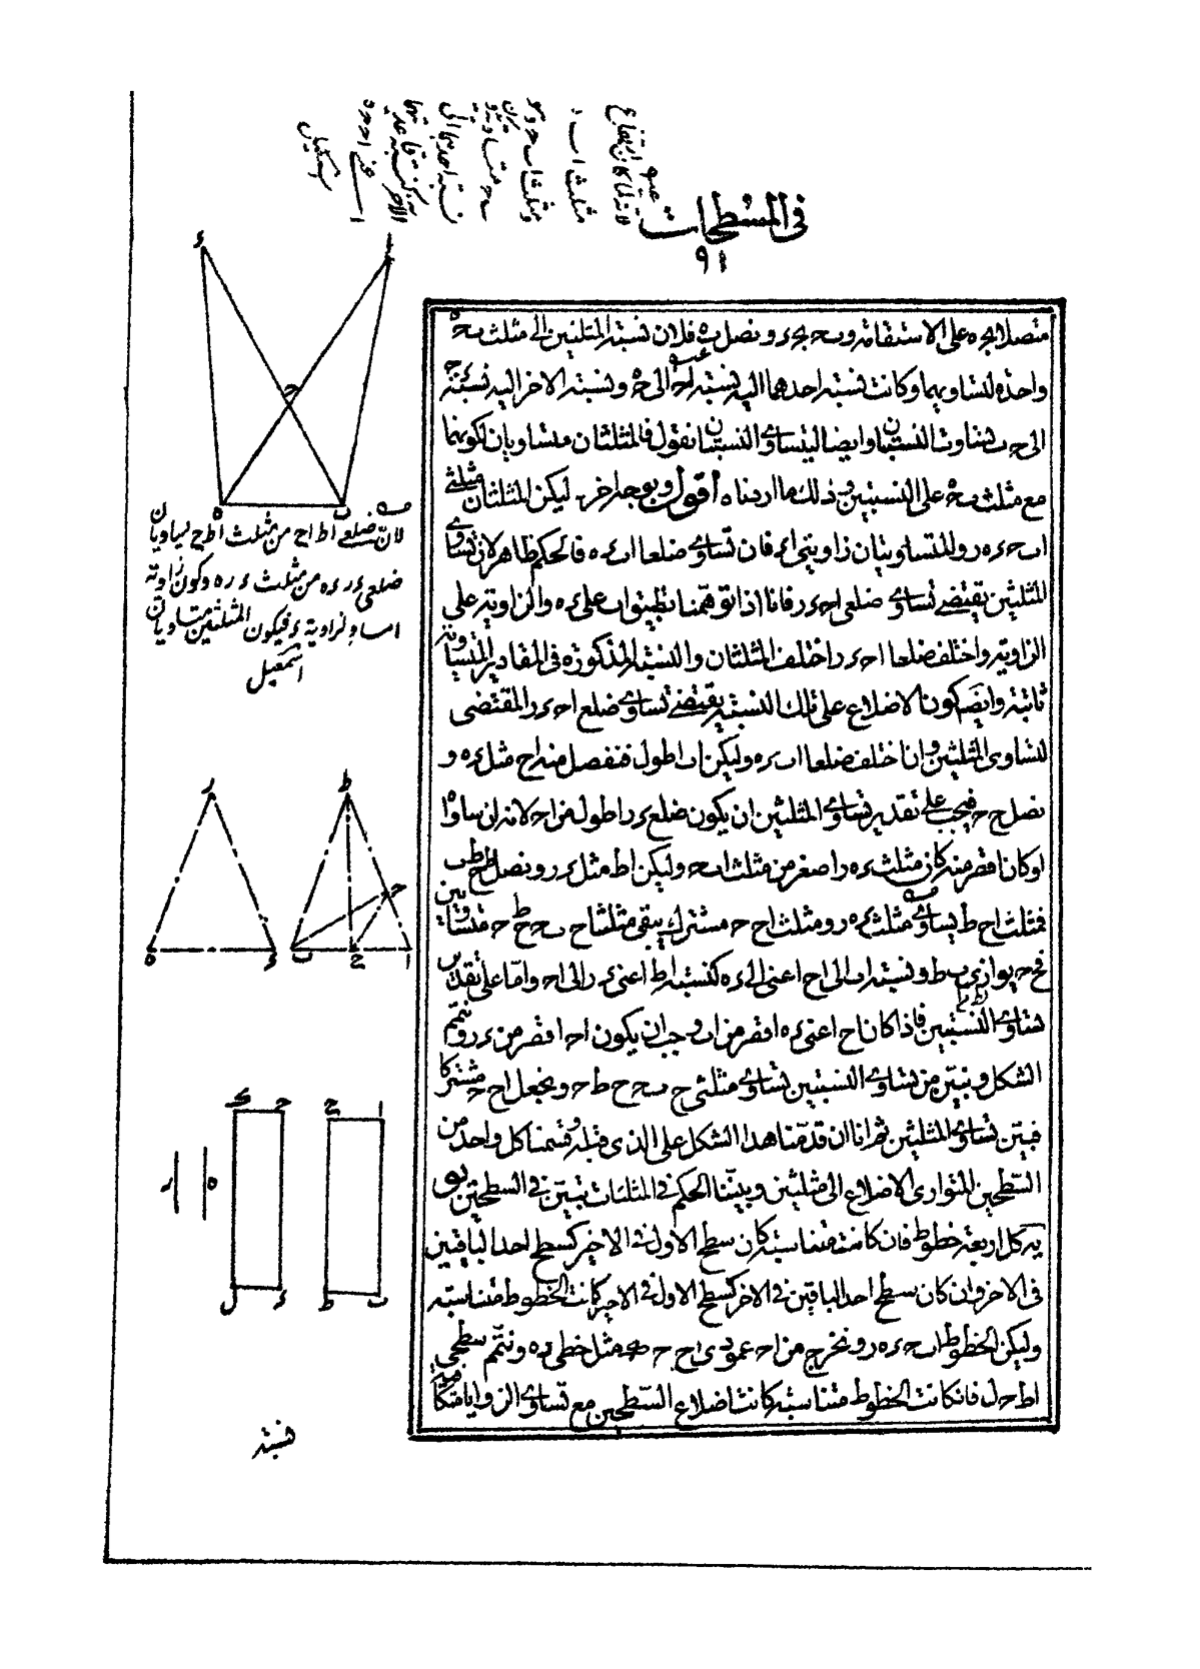 في المسطحات
٩١
متصلا بجـ ه على الاستقامة و ب جـ بجـ ء و نصل ب ه فلان نسبة المثلثين الى مثلث ب جـ ه
واحدة لتساويهما وكانت نسبة احدهما اليه كنسبة ا جـ الى جـ ه ونسبة الاخر اليه كنسبة ء جـ
الى جـ ب فتساوت النسبتان وايضا ليتساوى النسبتان نقول فالمثلثان متساويان لكونهما
مع مثلث ب جـ ه على النسبتين وذلك ما اردناه اقول وبوجه اخر ليكن المثلثان مثلثي
ا ب جـ ء ه ر والمتساويتان زاويتي ا ء فان تساوى ضلعا ا ب ء ه فالحكم ظاهر لان تساوى
المثلثين يقتضي تساوى ضلعي ا جـ ء ر فانا اذا توهمنا تطبيق ا ب على ء ه والزاوية على
الزاوية واختلف ضلعا ا جـ ء ر اختلف المثلثان والنسبة المذكورة في المقادير المتساوية
ثابتة وايضا كون الاضلاع على تلك النسبة يقتضي تساوى ضلع ا جـ ء ر المقتضى
لتساوى المثلثين وان اختلف ضلعا ا ب ء ه وليكن ا ب اطول فنفصل منه ا ح مثل ء ه و
نصل ح جـ فيجب على تقدير تساوى المثلثين ان يكون ضلع ء ر اطول من ا جـ لانه ان ساواه
او كان اقصر منه كان مثلث ء ه ر اصغر من مثلث ا ب جـ وليكن ا ط مثل ء ر ونصل ط ح ط ب
فمثلث ا ح ط يساوى مثلث ء ه ر ومثلث ا ح جـ مشترك يبقى مثلثا ح ب جـ ح ط جـ متساويين
فح جـ يوازى ب ط ونسبة ا ب الى ا ح اعنى الى ء ه كنسبة ا ط اعنى ء ر الى ا جـ واما على تقدير
تساوى النسبتين فاذا كان ا ح اعنى ء ه اقصر من ا ب وجب ان يكون ا جـ اقصر من ء ر و نتمم
الشكل ونبين من تساوى النسبتين تساوى مثلثي ح ب جـ ح ط جـ ونجعل ا ح جـ مشتركا
فيتبين تساوى المثلثين ثم انا ان قدمنا هذا الشكل على الذى قبله وقسمنا كل واحد من
السطحين المتوازى الاضلاع الى مثلثين وبينا الحكم في المثلثات تبين في السطحين
يه كل اربعة خطوط فان كانت متناسبة كان سطح الاول في الاخير كسطح احد الباقيين
في الاخر وان كان سطح احد الباقيين في الاخر كسطح الاول في الاخير كانت الخطوط متناسبة
وليكن الخطوط ا ب جـ ء ه ر ونخرج من ا جـ عمودى ا ح جـ ك مثل خطى ر ه ونتمم سطحي
ا ط جـ ل فان كانت الخطوط متناسبة كانت اضلاع السطحين مع تساوى الزوايا متكافية
نسبة
لان ضلعي ا ط ا ح من مثلث ا ط ح يساويان
ضلعي ء ر ء ه من مثلث ء ر ه وكون زاوية
ا مساو لزاوية ء فيكون المثلثين متساويان
اسمعيل